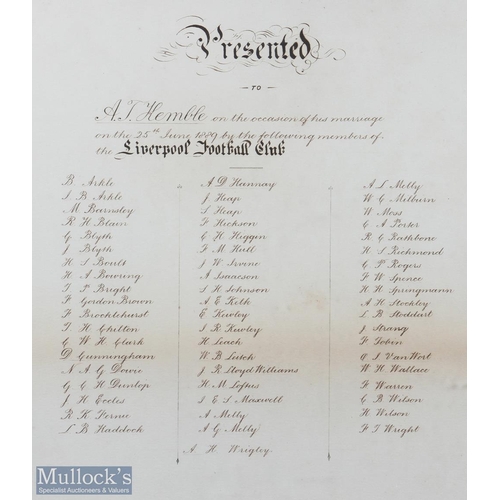 Presented
TO
A. T. Kemble on the occasion of his marriage
on the 25th June 1889 by the following members of
the Liverpool Football Club
B Arkle
S B Arkle
M Barnsley
R H Blain
G Blyth
J Blyth
H S Boult
H A Bowring
T P Bright
F Gordon Brown
F Brocklehurst
T H Chilton
C W H Clark
D Cunningham
N A G Dowie
G C H Dunlop
J H Eccles
R K Fernie
S B Haddock
A D Hannay
J Heap
S Heap
F Hickson
C H Higgin
F M Hull
J W Irvine
A Isaacson
S H Johnson
A E Kelk
E Kewley
S R Kewley
H Leach
W B Leitch
J R Lloyd Williams
H M Loftus
S E S Maxwell
A Melly
A G Melly
A H Wrigley.
A L Melly
W G Melburn
W Moss
C A Porter
R G Rathbone
H S Richmond
C P Rogers
F W Spence
H H Springmann
A H Stockley
L B Stoddart
J Strang
F Tobin
O S Van Wort
W H Wallace
F Warren
G B Wilson
H Wilson
F T Wright
Mullock's
Specialist Auctioneers & Valuers